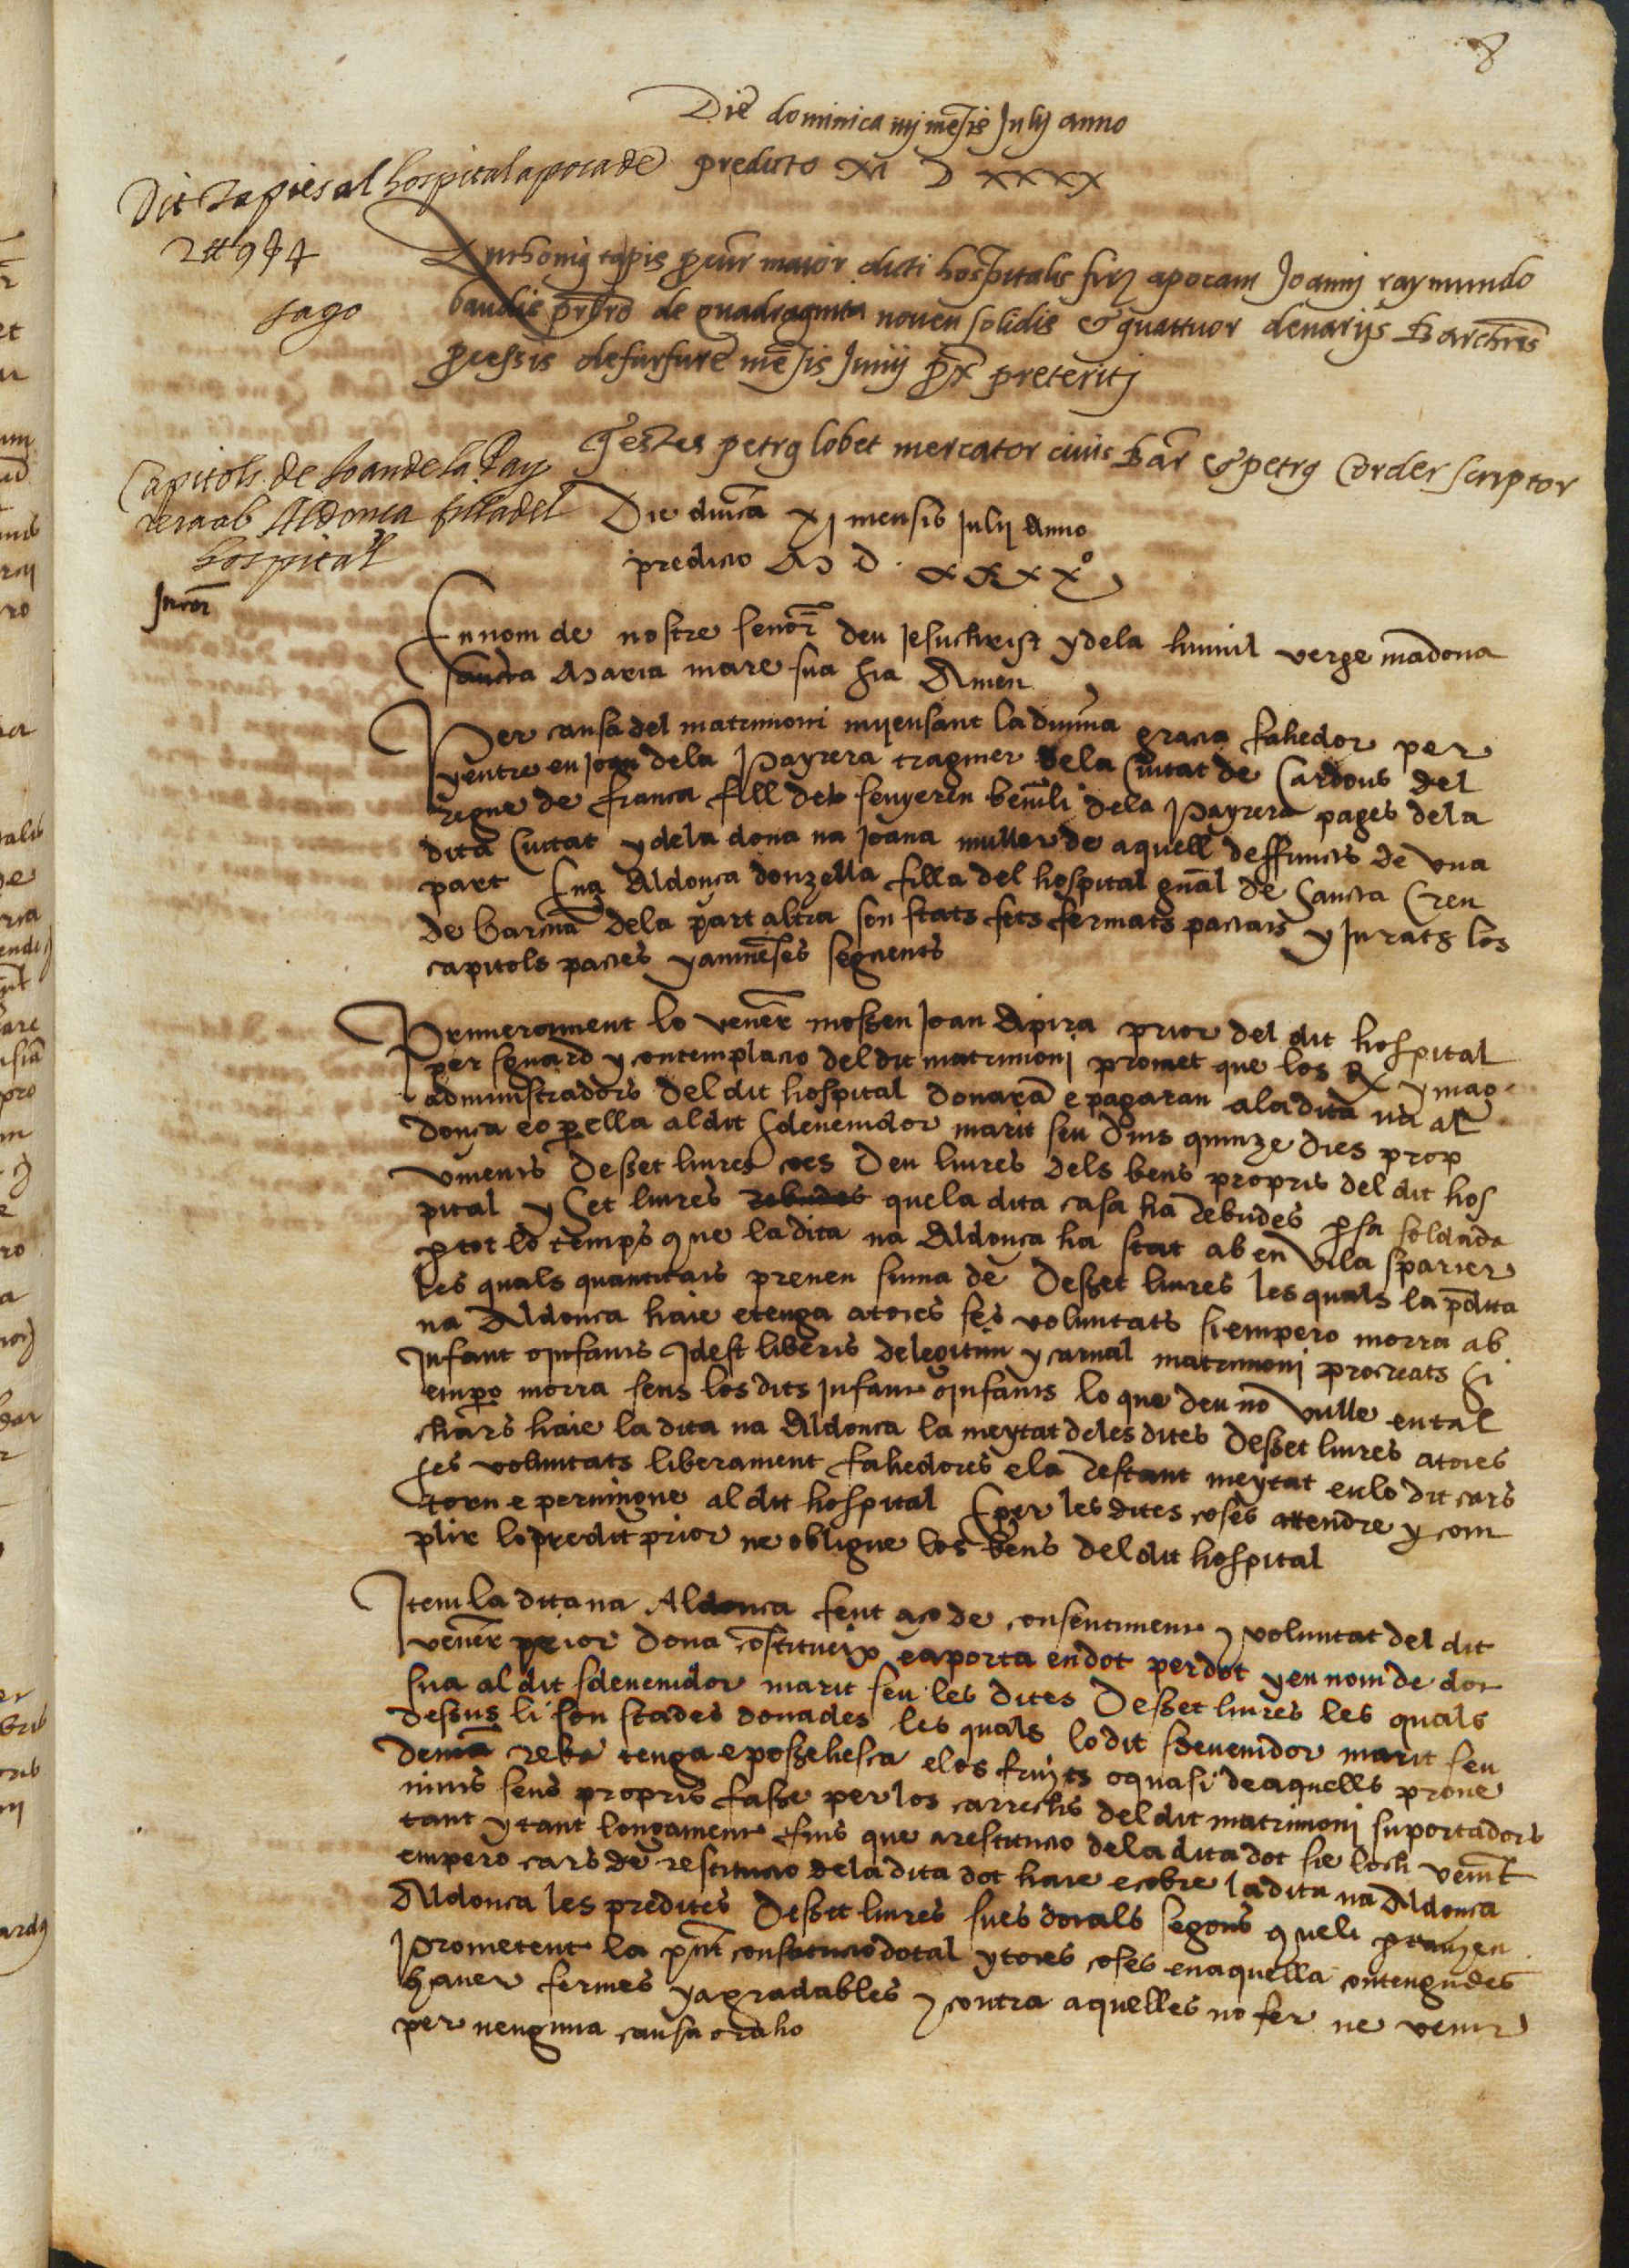 8
Die dominica iiij mēsis Julij anno
predicto M D xxxx
Dit Tapies al hospital apocade
2 ₶ 9 ẜ 4
sago
Anthonius tapis procur maior dicti hospitalis firmo apocam Joanni raymundo
baudis prbro de quadraginta noven solidis & quattuor denarijs Barchnēs
processis de furfure mēsis Junij prox preteritj
Testes petrus lobet mercator civis Bar & petrus Corder scriptor
Capitols de Joan de la Pay
rera ab Aldonca filla del
hospital
Die dnica xj mensis Julij Anno
predicto M D . xxxx°
En nom de nostre senor deu Jesuchrist y dela humil verge madona
sancta Maria mare sua sia Amen
Per causa del matrimoni mijensant la divina gracia fahedor per
y entre en Joan dela Payrera traginer dela Ciutat de Cardous del
regne de franca fill del senyer en dela Payrera pages dela
dita Ciutat y dela dona na Joana muller de aquell deffuncts de una
part E na Aldonça donzella filla del hospital gnal de Sancta Creu
de barcna dela part altra son stats fets fermats pactats y Jurats los
capitols pactes y avineses seguents
Primerament lo vener mossen Joan Apira prior del dit hospital
per sguard y contemplacio del dit matrimoni promet que los Rx y mag
administradors del dit hospital donara e pagaran ala dita na al
donça eo per ella al dit sdevenidor marit seu dins quinze dies prop
vinents desset liures ço es deu liures dels bens propris del dit hos
pital y set liures rebudes que la dita casa ha rebudes per sa soldada
per tot lo temps que la dita na Aldonça ha stat ab en vila sparter
les quals quantitats prenen suma de desset liures les quals la pdita
na Aldonca haie e tenga a totes ses voluntats si empero morra ab
Infant o Infants Idest liberis de legitim y carnal matrimoni procreats Si
empero morra sens los dits Infant o Infants lo que deu no vulle en tal
chars haie la dita na Aldonca la meytat de les dites desset liures a totes
ses voluntats liberament fahedores e la restant meytat en lo dit cars
torn e pervingue al dit hospital E per les dites coses attendre y com
plir lo predit prior ne obligue los bens del dit hospital
Item la dita na Aldonca fent aço de consentiment y voluntat del dit
vener prior dona constitueix e aporta en dot per dot y en nom de dot
sua al dit sdevenidor marit seu les dites desset liures les quals
dessus li son stades donades les quals lo dit sdevenidor marit seu
reba tenga e possehesca e los fruyts o quasi de aquells prove
nints seus propris fasse per los carrechs del dit matrimoni suportadors
tant y tant longament fins que a restitucio dela dita dot sie loch venint
empero cars de restitucio dela dita dot haie e cobre la dita na Aldonca
Aldonca les predites desset liures sues dotals segons que li pertanyen
Prometent la pnt constitucio dotal y totes coses en aquella contengudes
haver fermes y agradables y contra aquelles no fer ne venir
per nenguna causa o raho